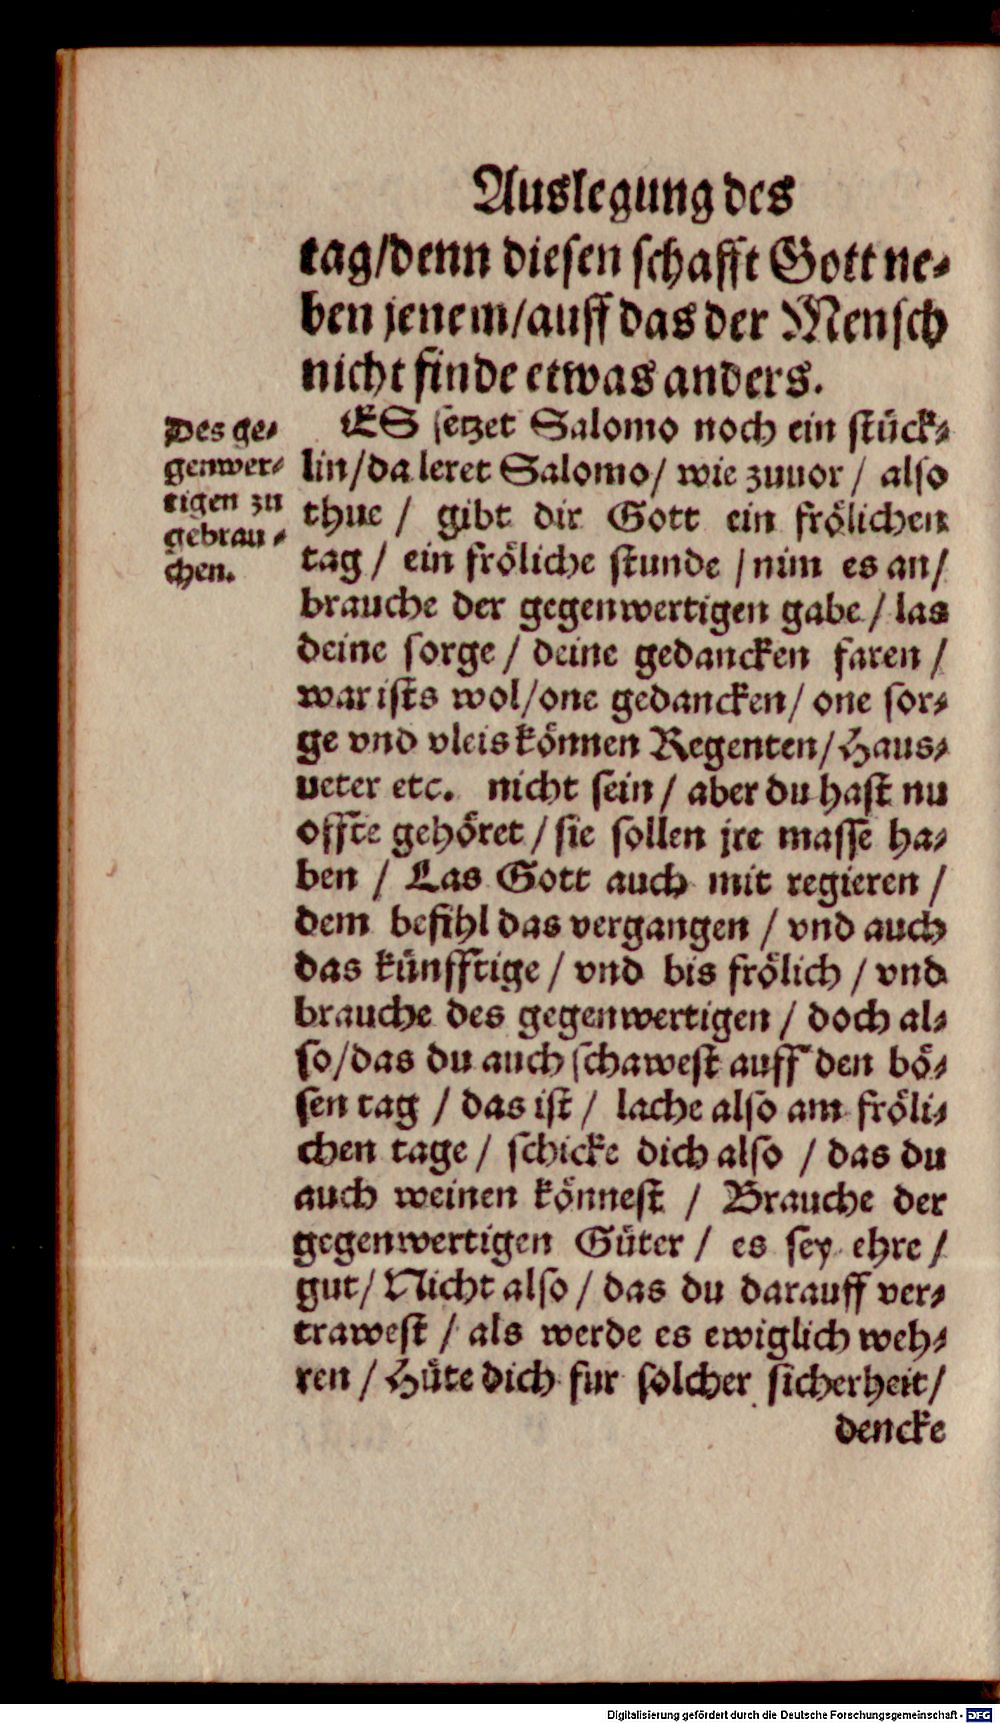 Auslegung des
tag/denn diesen schafft Gott ne-
ben jenem/auff das der Mensch
nicht finde etwas anders.
Des ge-
genwer-
tigen zu
gebrau-
chen.
ES setzet Salomo noch ein stück-
lin/da leret Salomo/ wie zuuor / also
thue / gibt dir Gott ein frölichen
tag / ein fröliche stunde / nim es an/
brauche der gegenwertigen gabe / las
deine sorge / deine gedancken faren /
war ists wol/one gedancken/ one sor-
ge vnd vleis können Regenten/Haus-
ueter etc. nicht sein / aber du hast nu
offte gehöret / sie sollen jre masse ha-
ben / Las Gott auch mit regieren /
dem befihl das vergangen / vnd auch
das künfftige / vnd bis frölich / vnd
brauche des gegenwertigen / doch al-
so/das du auch schawest auff den bö-
sen tag / das ist / lache also am fröli-
chen tage / schicke dich also / das du
auch weinen könnest / Brauche der
gegenwertigen Güter / es sey ehre /
gut/ Nicht also / das du darauff ver-
trawest / als werde es ewiglich weh-
ren / Hüte dich fur solcher sicherheit/
dencke
Digitalisierung gefördert durch die Deutsche Forschungsgemeinschaft - DFG